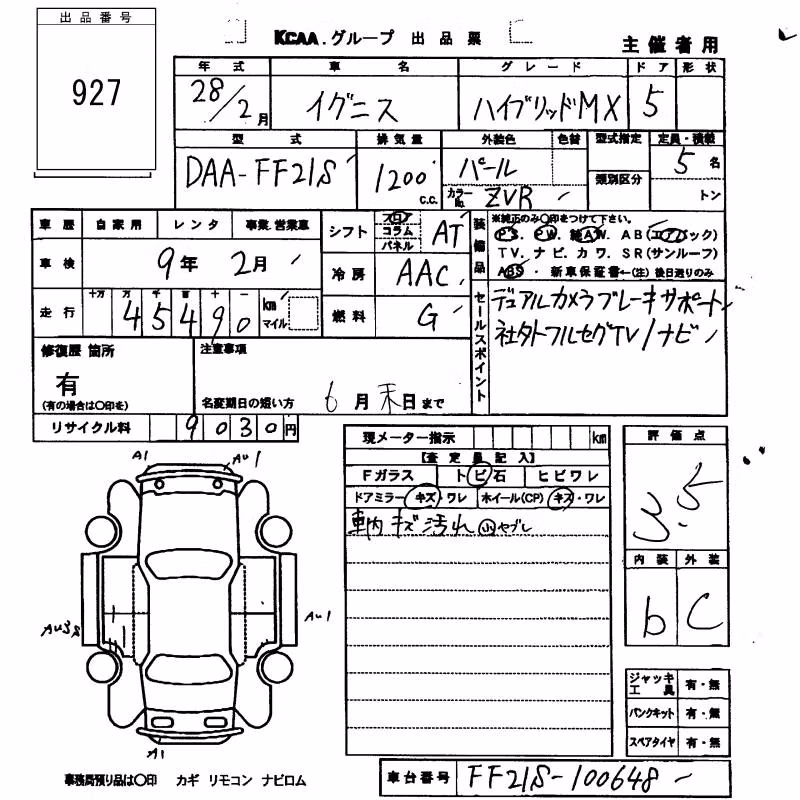 出品番号
927
KCAA.グループ 出品票
主催者用
年式 車名 グレード ドア 形状
28/2月 イグニス ハイブリッドMX 5
型式 排気量 外装色 色替 型式指定 定員・積載
DAA-FF21S 1200 c.c. パール 類別区分 5名
カラーNo. ZVR トン
車歴 自家用 レンタ 事業.営業車
シフト フロア コラム パネル AT
装備品
※純正のみ〇印をつけて下さい。
PS. PW. 純AW. AB(エアバック)
TV. ナビ. カワ. SR(サンルーフ)
ABS・新車保証書←(注)後日送りのみ
車検 9年 2月
冷房 AAC
走行 十万 万 千 百 十 一
45490 km マイル
燃料 G
セールスポイント
デュアルカメラブレーキサポート
社外フルセグTV/ナビ
修復歴 箇所
有
(有の場合は〇印を)
注意事項
名変期日の短い方 6月末日まで
リサイクル料 9030円
現メーター指示 km
【査定員記入】
Fガラス トビ石 ヒビワレ
ドアミラー キズ・ワレ ホイール(CP) キズ・ワレ
車内キズ汚れ 小ヤブレ
評価点
3.5
内装 外装
b C
A1 AU1
AU3S AU1
A1
ジャッキ工具 有・無
パンクキット 有・無
スペアタイヤ 有・無
事務局預り品は〇印 カギ リモコン ナビロム
車台番号 FF21S-100648